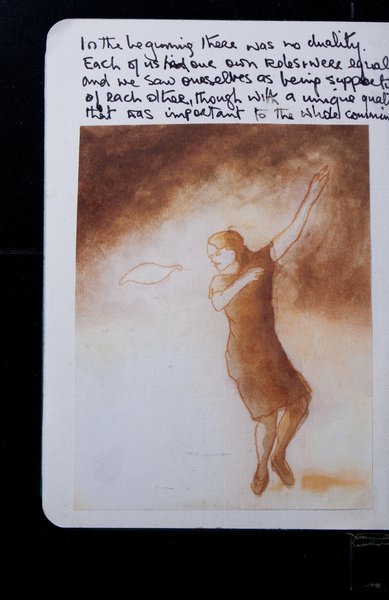 In the beginning there was no duality.
Each of us had our own roles & were equal
and we saw ourselves as being support
of each other, though with a unique qual
that was important to the whole commun